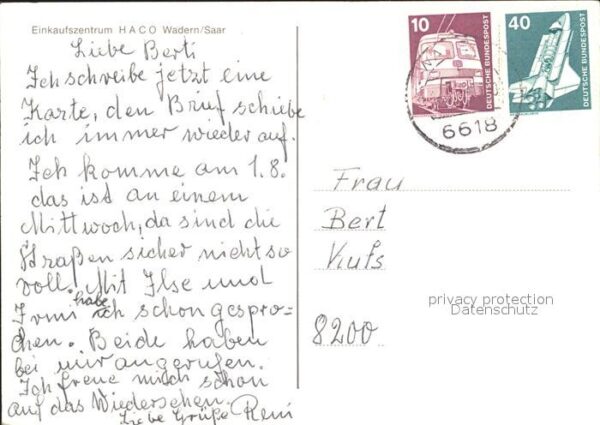 Einkaufszentrum HACO Wadern/Saar
Liebe Berti
Ich schreibe jetzt eine
Karte, den Brief schiebe
ich immer wieder auf.
Ich komme am 1.8.
das ist an einem
Mittwoch, da sind die
Straßen sicher nicht so
voll. Mit Ilse und
Irmi habe ich schon gespro-
chen. Beide haben
bei mir angerufen.
Ich freue mich schon
auf das Wiedersehen.
Liebe Grüße Reni
10
DEUTSCHE BUNDESPOST
40
DEUTSCHE BUNDESPOST
6618
Frau
Bert
Kufs
8200
privacy protection
Datenschutz